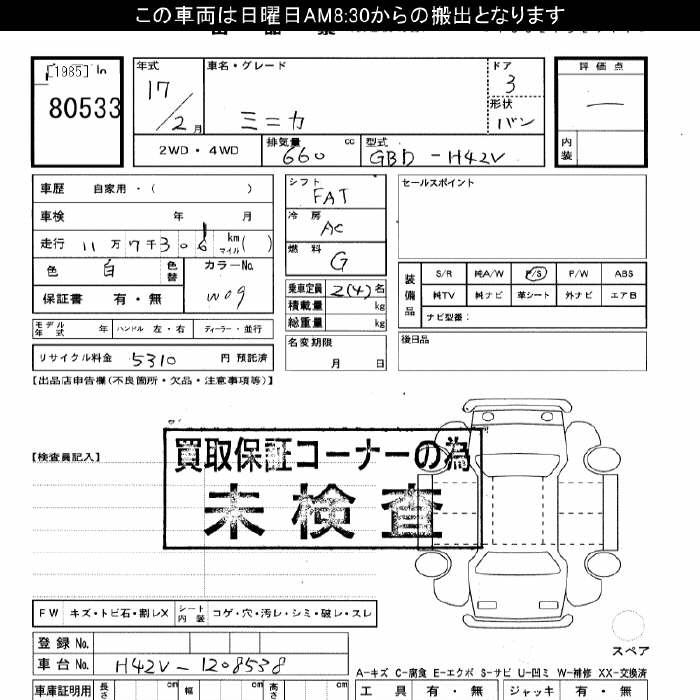 この車両は日曜日AM8:30からの搬出となります
[1985] In
80533
年式 車名・グレード ドア 評価点
17/2月 ミニカ 3 —
形状
バン
2WD・4WD 排気量 660 cc 型式 GBD-H42V 内装
車歴 自家用・( ) シフト FAT セールスポイント
車検 年 月 冷房 AC
走行 11万7千306 km マイル ( ) 燃料 G
色 白 色替 カラーNo. W09
保証書 有・無
乗車定員 2(4)名
積載量 kg
総重量 kg
装備品 S/R 純A/W P/S P/W ABS
純TV 純ナビ 革シート 外ナビ エアB
ナビ型番:
モデル年式 年 ハンドル 左・右 ディーラー・並行
名変期限 月 日
後日品
リサイクル料金 5310 円 預託済
【出品店申告欄(不良箇所・欠品・注意事項等)】
【検査員記入】
買取保証コーナーの為
未検査
FW キズ・トビ石・割レX シート内装 コゲ・穴・汚レ・シミ・破レ・スレ
スペア
登録No.
車台No. H42V-1208538
A-キズ C-腐食 E-エクボ S-サビ U-凹ミ W-補修 XX-交換済
車庫証明用 長さ cm 幅 cm 高さ cm 工具 有・無 ジャッキ 有・無